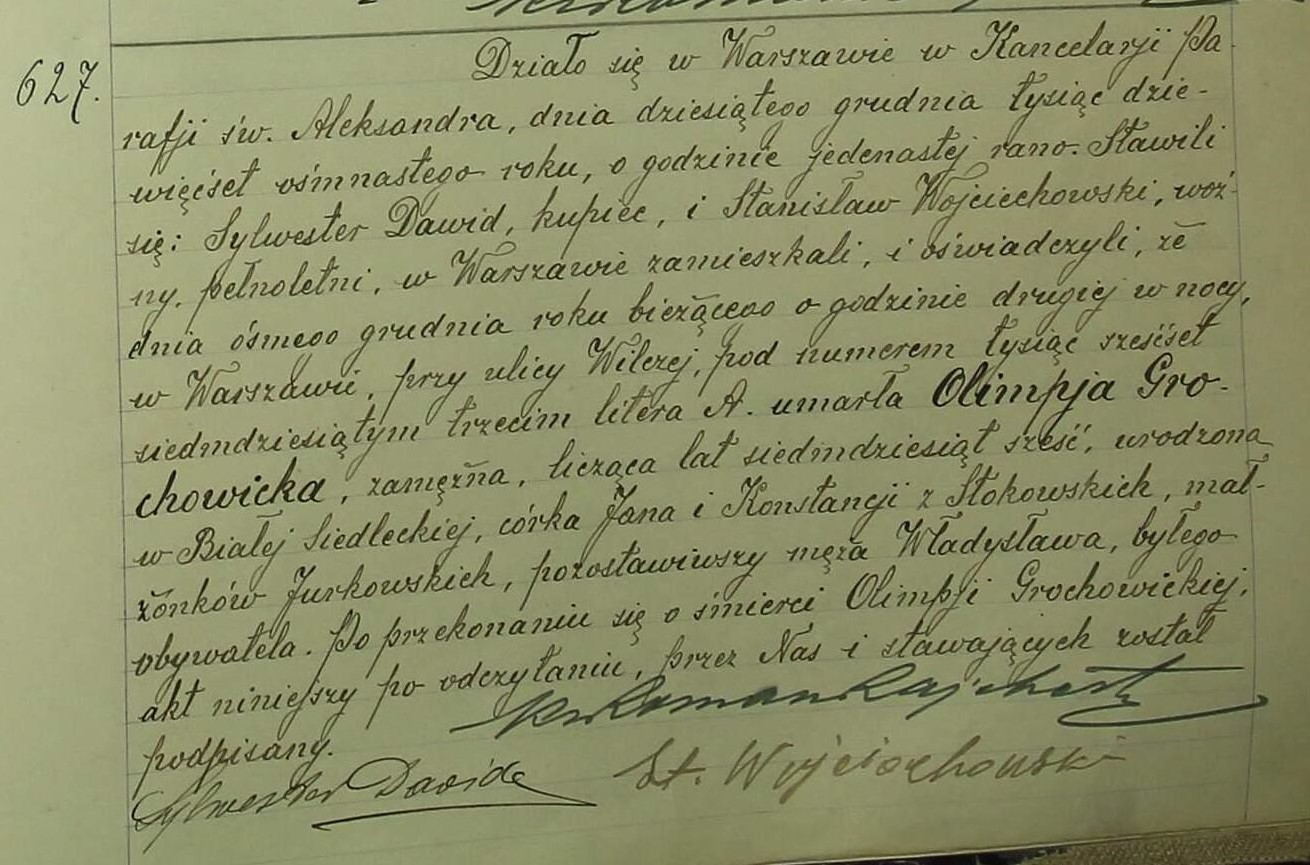 627.
Działo się w Warszawie w Kancelarji Pa-
rafji św. Aleksandra, dnia dziesiątego grudnia tysiąc dzie-
więćset ośmnastego roku, o godzinie jedenastej rano. Stawili
się: Sylwester Dawid, kupiec, i Stanisław Wojciechowski, woź-
ny, pełnoletni, w Warszawie zamieszkali, i oświadczyli, że
dnia ósmego grudnia roku bieżącego o godzinie drugiej w nocy,
w Warszawie, przy ulicy Wilczej, pod numerem tysiąc sześćset
siedmdziesiątym trzecim litera A. umarła Olimpja Gro-
chowicka, zamężna, licząca lat siedmdziesiąt sześć, urodzona
w Białej Siedleckiej, córka Jana i Konstancji z Stokowskich, mał-
żonków Jurkowskich, pozostawiwszy męża Władysława, byłego
obywatela. Po przekonaniu się o śmierci Olimpji Grochowickiej,
akt niniejszy po odczytaniu, przez Nas i stawających został
podpisany.
Roman
Sylwester Dawid St. Wojciechowski